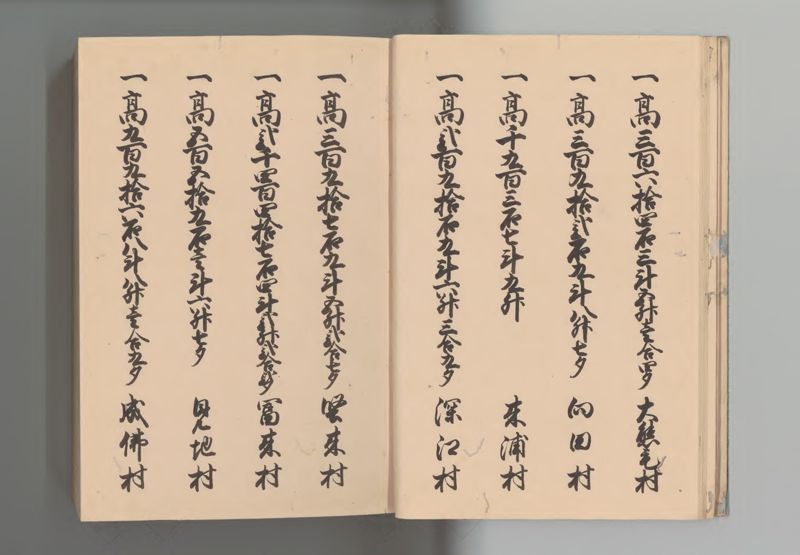 一高三百六拾四石三斗五升壱合四夕 大熊毛村
一高三百九拾弐石九斗八升七夕 向田村
一高千九百三石七斗九升 来浦村
一高弐百九拾石九斗六升三合五夕 深江村
一高三百九拾七石九斗五升弐合七夕 堅来村
一高弐千四百四拾七石四斗弐升弐合 富来村
一高五百五拾九石壱斗六升七夕 見地村
一高九百九拾六石八斗八升壱合九夕 成佛村